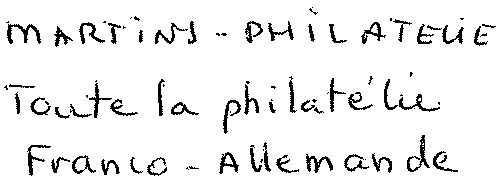 MARTINS - PHILATELIE
Toute la philatélie
Franco - Allemande